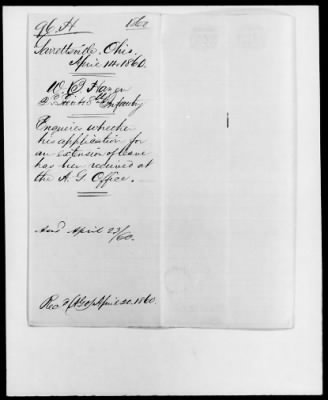 96. H 1860
Garrettsville, Ohio.
April 14. 1860.
W. B. Hazen
2d Lieut 8th Infantry
Enquires whether
his application for
an extension of leave
has been received at
the A. G. Office.
Ansd April 23/60.
Recd (AGO) April 20. 1860.